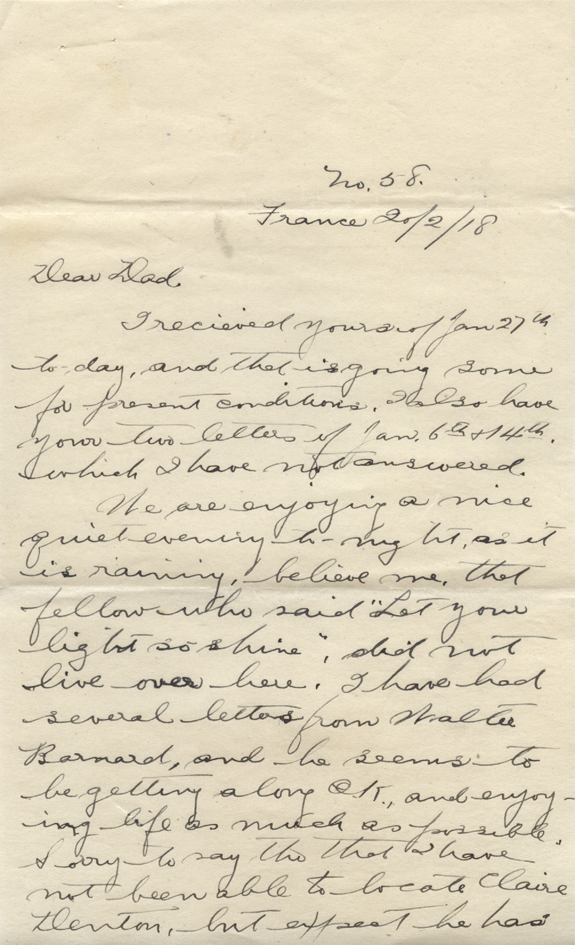 No. 58.
France 20/2/18
Dear Dad.
I recieved yours of Jan 27th
to-day, and that is going some
for present conditions. I also have
your two letters of Jan. 6th & 14th.
which I have not answered.
We are enjoying a nice
quiet evening to-night, as it
is raining, believe me, that
fellow who said "Let your
light so shine", did not
live over here. I have had
several letters from Walter
Barnard, and he seems to
be getting along O.K., and enjoy-
ing life as much as possible.
Sorry to say tho that I have
not been able to locate Claire
Denton, but expect he has